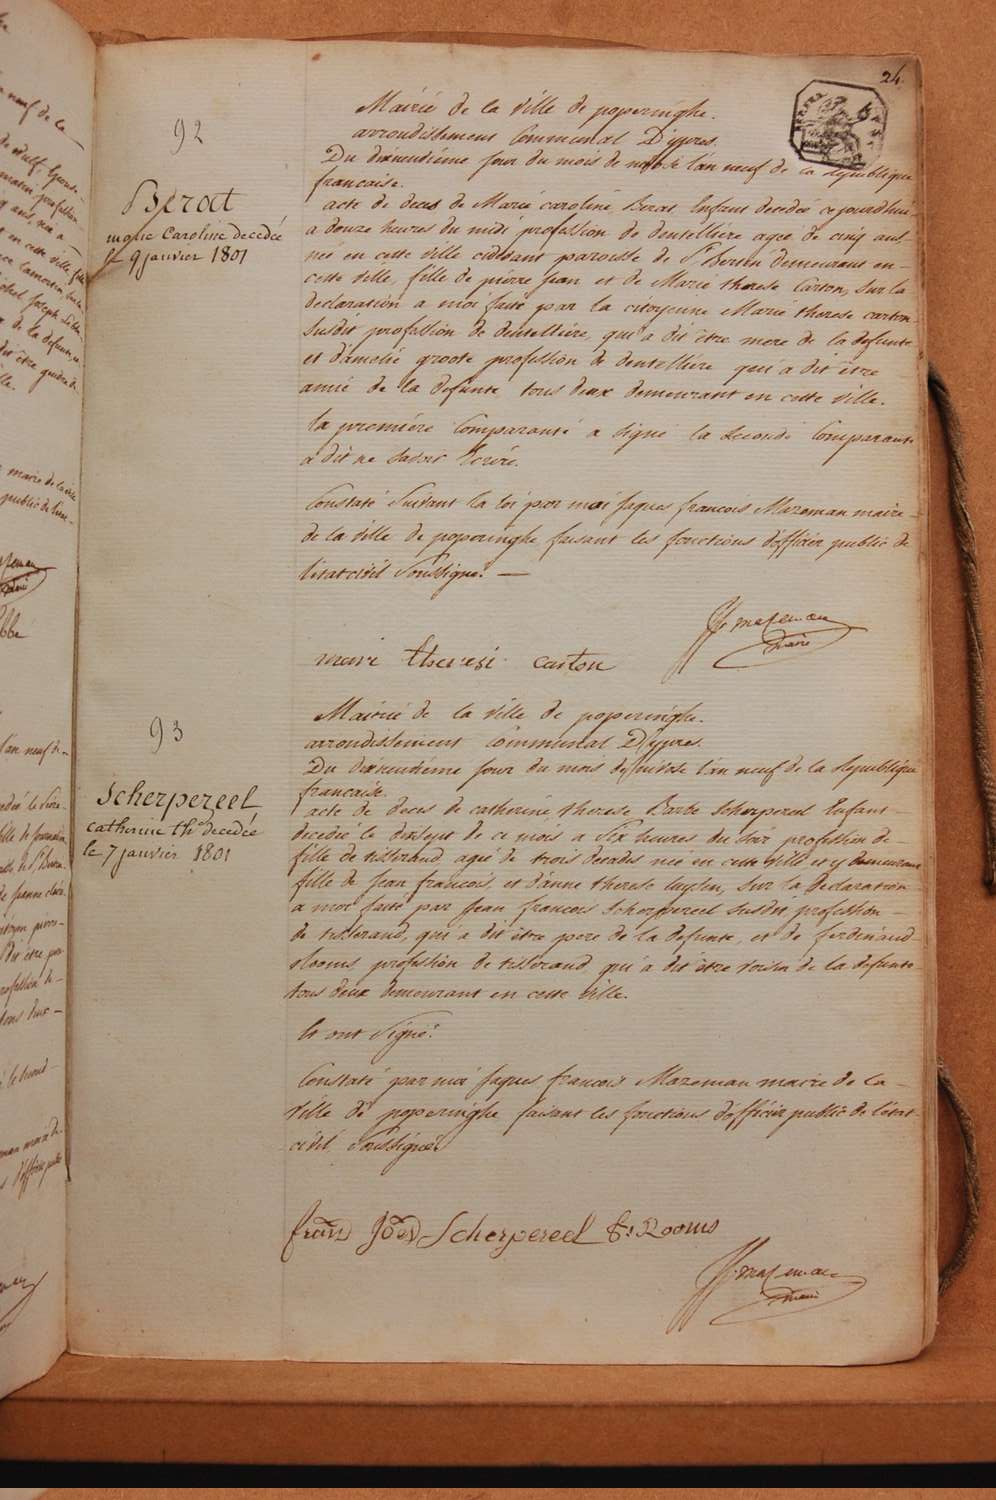 24.
92
Mairié de la ville de poperinghe.
arrondissement Communal D'ypres.
Du dixneuviéme Jour du mois de nivose l'an neuf de la Republique
francaise.
Berat
Caroline decedée
le 9 janvier 1801
acte de deces de Marie caroline Berat Enfant decedée cejourdhui
a douze heures du midi profession de dentelliere agée de cinq ans
née en cette ville cidevant paroisse de St Bertin demeurant en
cette ville, fille de pierre Jean et de Marie therese Carton, sur la
declaration a moi faite par la citoyenne Marie therese carton
susdit profession de dentelliere, qui a dit être mere de la defunte
et d'amelié groote profession de dentelliere qui a dit être
amie de la defunte, tous deux demeurant en cette ville.
la premiére Comparanté a signé la secondé Comparante
a dit ne savoir Ecrire.
Constaté suivant la loi par moi Jaques francois Mazeman maire
de la ville de poperinghe faisant les fonctions d'officier public de
l'etat civil soussigné.
JJ mazeman
maire
mari theresi carton
93
Mairié de la ville de poperinghe.
arrondissement Communal D'ypres.
Du dixneuviéme Jour du mois de nivose l'an neuf de la Republique
francaise.
Scherpereel
catherine the decedée
le 7 janvier 1801
acte de deces de catherine therese Barbe Scherpereel Enfant
decedée le dixsept de ce mois a six heures du soir profession de
fille de tisserand, agée de trois decades née en cette ville et y demeurant
fille de Jean francois, et d'anne therese luyssen, sur la declaration
a moi faite par Jean francois Scherpereel susdit profession
de tisserand, qui a dit être pere de la defunte, et de ferdinand
Rooms profession de tisserand qui a dit être voisin de la defunte
tous deux demeurant en cette ville.
Et ont signé.
Constaté par moi Jaques francois Mazeman maire de la
ville de poperinghe faisant les fonctions d'officier public de l'etat
civil, soussigné.
Scherpereel F: Rooms
JJ mazeman
maire